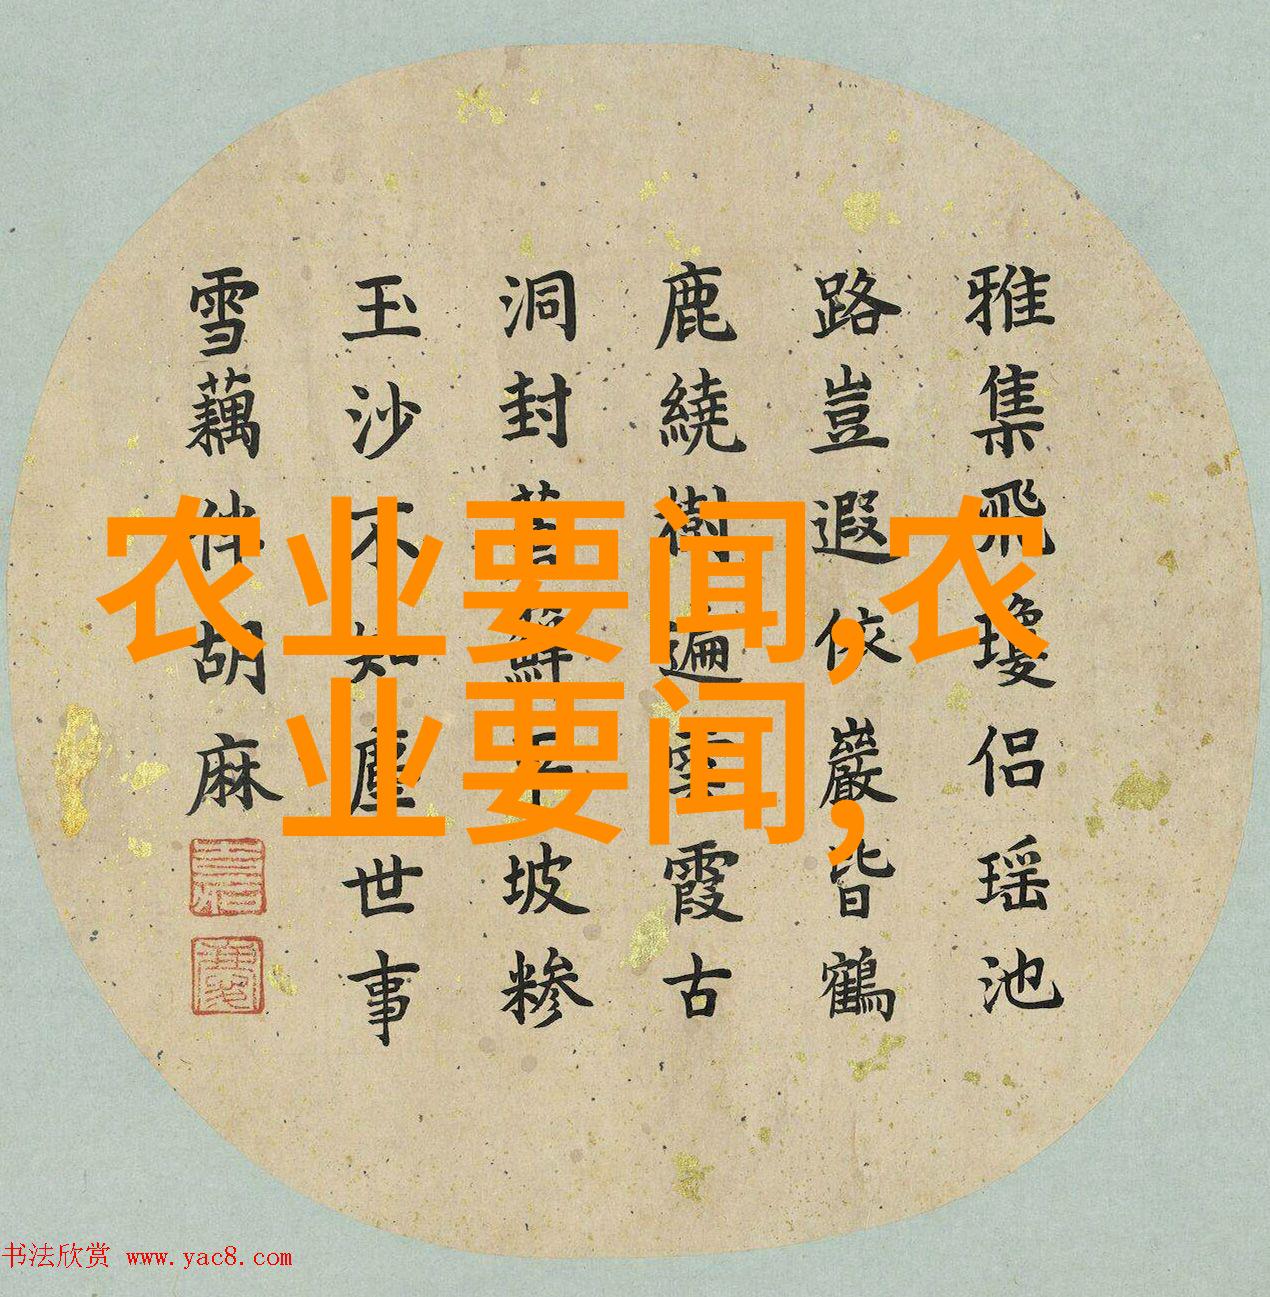 农业要闻,农
业要闻,
雅集飛瓊侣瑶池
路豈遐依巖皆鶴
鹿繞樹遍雲霞古
洞封蘚坡糝
玉沙不知塵世事
雪藕伴胡麻
书法欣赏 www.yac8.com